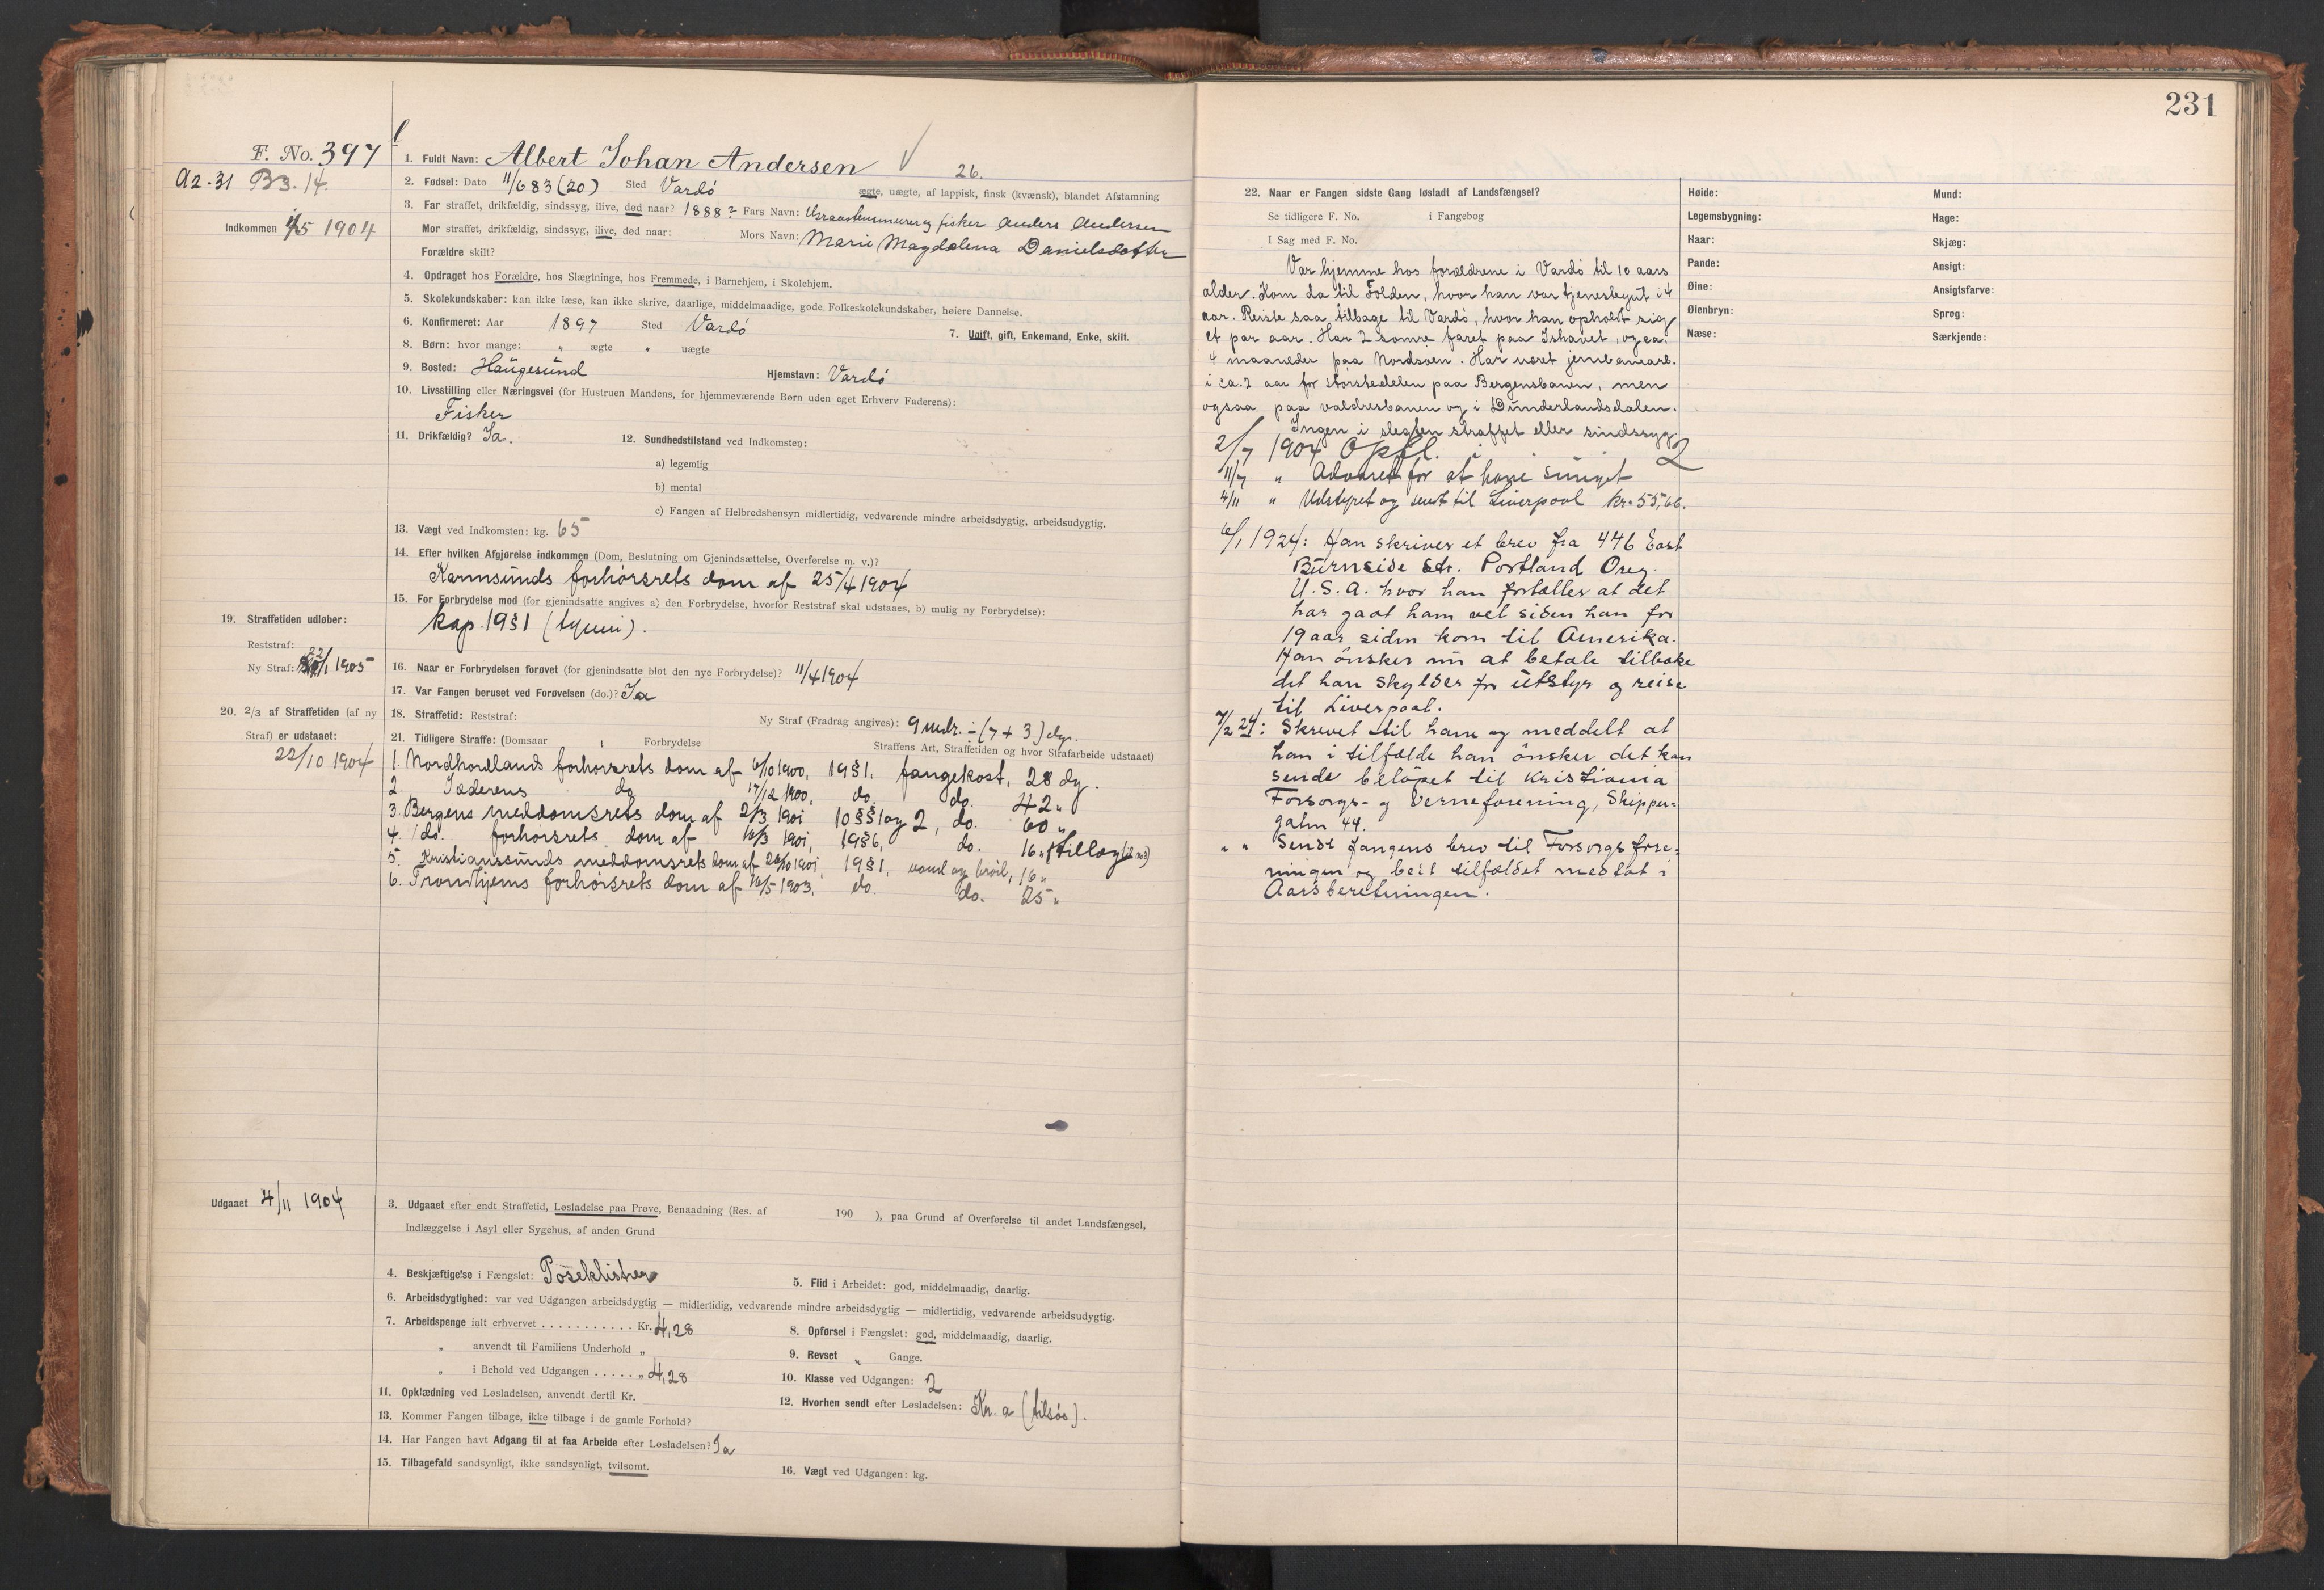 231
F. No. 397
A2.31 B3.14.
Indkommen 4/5 1904
1. Fuldt Navn: Albert Johan Andersen V 26.
2. Fødsel: Dato 11/6 83 (20) Sted Vardö ægte, uægte, af lappisk, finsk (kvænsk), blandet Afstamning
3. Far straffet, drikfældig, sindssyg, ilive, død naar? 1888? Fars Navn: Graastensmurer og fisker Anders Andersen
Mor straffet, drikfældig, sindssyg, ilive, død naar: Mors Navn: Marie Magdalena Danielsdatter
Forældre skilt?
4. Opdraget hos Forældre, hos Slægtninge, hos Fremmede, i Barnehjem, i Skolehjem.
5. Skolekundskaber: kan ikke læse, kan ikke skrive, daarlige, middelmaadige, gode Folkeskolekundskaber, høiere Dannelse.
6. Konfirmeret: Aar 1897 Sted Vardö 7. Ugift, gift, Enkemand, Enke, skilt.
8. Børn: hvor mange: " ægte " uægte
9. Bosted: Haugesund Hjemstavn: Vardö
10. Livsstilling eller Næringsvei (for Hustruen Mandens, for hjemmeværende Børn uden eget Erhverv Faderens):
Fisker
11. Drikfældig? Ja. 12. Sundhedstilstand ved Indkomsten:
a) legemlig
b) mental
c) Fangen af Helbredshensyn midlertidig, vedvarende mindre arbeidsdygtig, arbeidsudygtig.
13. Vægt ved Indkomsten: kg. 65
14. Efter hvilken Afgjørelse indkommen (Dom, Beslutning om Gjenindsættelse, Overførelse m. v.)?
Karmsunds forhörsrets dom af 25/4 1904
15. For Forbrydelse mod (for gjenindsatte angives a) den Forbrydelse, hvorfor Reststraf skal udstaaes, b) mulig ny Forbrydelse):
kap. 19 § 1 (tyveri).
19. Straffetiden udløber:
Reststraf:
Ny Straf: 22/1 1905
16. Naar er Forbrydelsen forøvet (for gjenindsatte blot den nye Forbrydelse)? 11/4 1904
17. Var Fangen beruset ved Forøvelsen (do.)? Ja
20. 2/3 af Straffetiden (af ny
Straf) er udstaaet:
22/10 1904
18. Straffetid: Reststraf: Ny Straf (Fradrag angives): 9 mdr. ÷ (7 + 3) dg.
21. Tidligere Straffe: (Domsaar Forbrydelse Straffens Art, Straffetiden og hvor Strafarbeide udstaaet)
1. Nordhordlands forhörsrets dom af 6/10 1900, 19 § 1. fangekost, 28 dg.
2. Jæderens do 17/12 1900, do. do. 42 "
3. Bergens meddomsrets dom af 2/3 1901 10 §§ 1 og 2, do. 60 "
4. do. forhörsrets dom af 16/3 1901, 19 § 6, do. 16 " (tillæg til no 3)
5. Kristianssunds meddomsrets dom af 26/10 1901, 19 § 1, vand og bröd, 16 "
6. Trondhjems forhörsrets dom af 16/5 1903, do. do. 25 "
Udgaaet 4/11 1904
3. Udgaaet efter endt Straffetid, Løsladelse paa Prøve, Benaadning (Res. af 190 ), paa Grund af Overførelse til andet Landsfængsel,
Indlæggelse i Asyl eller Sygehus, af anden Grund
4. Beskjæftigelse i Fængslet: Poseklistrer 5. Flid i Arbeidet: god, middelmaadig, daarlig.
6. Arbeidsdygtighed: var ved Udgangen arbeidsdygtig — midlertidig, vedvarende mindre arbeidsdygtig — midlertidig, vedvarende arbeidsudygtig.
7. Arbeidspenge ialt erhvervet . . . . . . . . . . . Kr. 4,28 8. Opførsel i Fængslet: god, middelmaadig, daarlig.
" anvendt til Familiens Underhold " 9. Revset " Gange.
" i Behold ved Udgangen . . . . . " 4,28 10. Klasse ved Udgangen: 2
11. Opklædning ved Løsladelsen, anvendt dertil Kr. 12. Hvorhen sendt efter Løsladelsen: Kr. a (tilsös).
13. Kommer Fangen tilbage, ikke tilbage i de gamle Forhold?
14. Har Fangen havt Adgang til at faa Arbeide efter Løsladelsen? Ja
15. Tilbagefald sandsynligt, ikke sandsynligt, tvilsomt. 16. Vægt ved Udgangen: kg.
22. Naar er Fangen sidste Gang løsladt af Landsfængsel?
Se tidligere F. No. i Fangebog
I Sag med F. No.
Var hjemme hos forældrene i Vardö til 10 aars
alder. Kom da til Folden, hvor han var tjenestegut i 4
aar. Reiste saa tilbage til Vardö, hvor han opholdt sig
et par aar. Har 2 somre faret paa Ishavet, og ca.
4 maaneder paa Nordsöen. Har været jernbanearb.
i ca. 2 aar for störstedelen paa Bergensbanen, men
ogsaa paa valdresbanen og i Dunderlandsdalen.
Ingen i slegten straffet eller sindssyg.
2/7 1904 Opfl. i 2
11/7 " Advaret for at have sunget
4/11 " Udstyret og sendt til Liverpool kr. 55,66.
16/1 1924: Han skriver et brev fra 446 East
Burnside Str. Portland Oreg.
U.S.A. hvor han fortæller at det
har gaat ham vel siden han for
19 aar siden kom til Amerika.
Han önsker nu at betale tilbake
det han skylder for utstyr og reise
til Liverpool.
7/2 24: Skrevet til ham og meddelt at
han i tilfælde han önsker det kan
sende belöpet til Kristiania
Forsorgs- og Verneforening, Skipper-
gatn 44.
" " Sendt fangens brev til Forsorgsfore-
ningen og bedt tilfældet medtat i
Aarsberetningen.
Høide:
Legemsbygning:
Haar:
Pande:
Øine:
Øienbryn:
Næse:
Mund:
Hage:
Skjæg:
Ansigt:
Ansigtsfarve:
Sprog:
Særkjende: